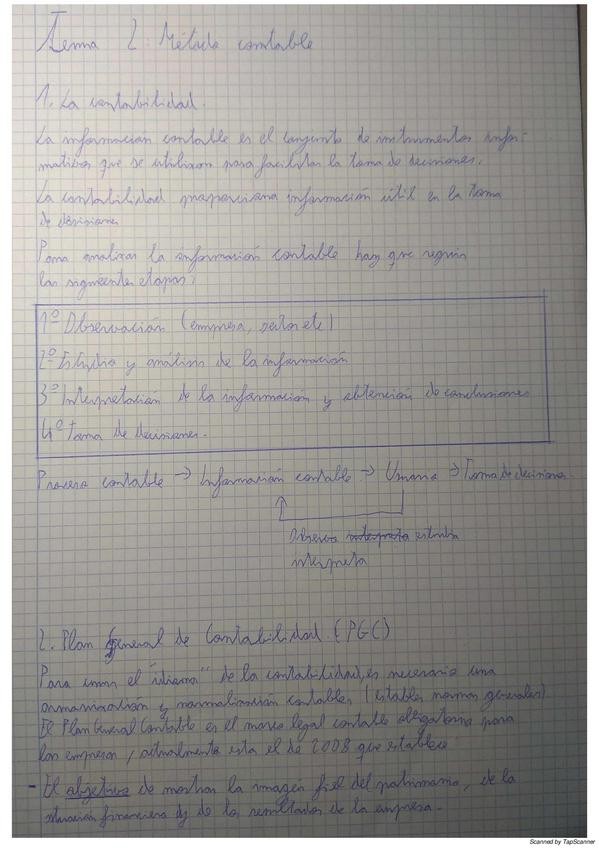 Tema 2: Método contable
1. La contabilidad.
La información contable es el conjunto de instrumentos infor-
mativos que se utilizan para facilitar la toma de decisiones.
La contabilidad proporciona información útil en la toma
de decisiones
Para analizar la información contable hay que seguir
las siguientes etapas:
1º Observación (empresa, sector etc)
2º Estudio y análisis de la información
3º Interpretación de la información y obtención de conclusiones
4º Toma de decisiones.
Proceso contable → Información contable → Usuario → Toma de decisiones
Observa interpreta estudia
interpreta
2. Plan General de Contabilidad. (PGC)
Para unir el "idioma" de la contabilidad, es necesario una
armonización y normalización contables (establec normas generales)
El Plan General Contable es el marco legal contable obligatorio para
las empresas, actualmente esta el de 2008 que establece
- El objetivo de mostrar la imagen fiel del patrimonio, de la
situación financiera y de los resultados de la empresa.
Scanned by TapScanner